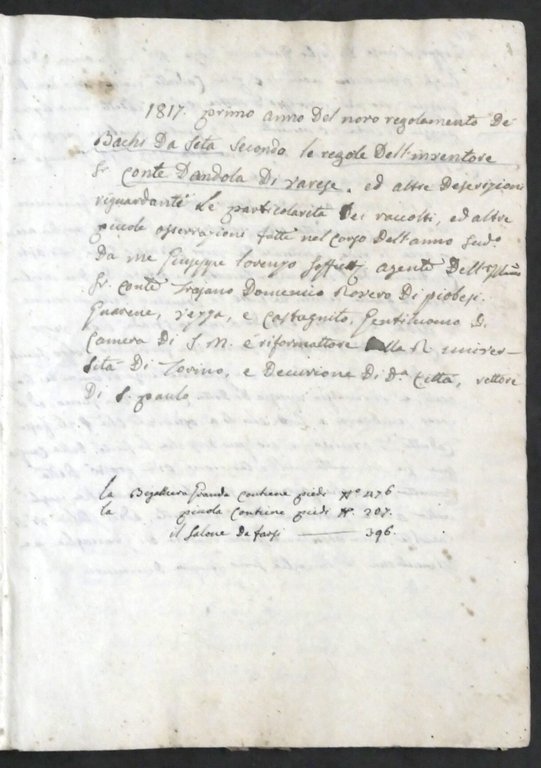 1817. primo anno del novo regolamento de
Bachi da seta secondo le regole dell'inventore
Sr. conte Dandola di varese, ed altre descrizioni
riguardanti le particolarità dei raccolti, ed altre
piccole osservazioni fatte nel corso dell'anno sudo
da me Giuseppe Lorenzo agente dell'Illmo
Sr. conte Trajano Domenico Rovero di piobesi
Guarene, vezza, e Castagnito, Gentiluomo di
Camera di S. M. e riformattore della R. univer-
sità di Torino, e Decurione di da. Città, rettore
di S. paulo
la Bigattiera Granda contiene piedi No. 476
la picola contiene piedi No. 207.
il Salone da farsi — 396.